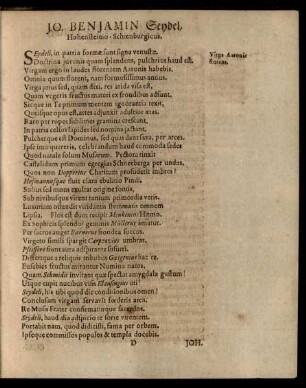 JO. BENJAMIN Seydel,
Hohensteino-Schœnburgicus.
SEydeli, in patria formæ sunt signa venustæ.
Doctrina juvenis quam splendens, pulchrior haud est.
Virgam ergo in laudes florentem Aaronis habebis.
Virga Aaronis
florens.
Omnia quum florent, nam formosissimus annus.
Virga prius sed, quam dixi, res arida visa est,
Quam vegetis fructus maturi ex frondibus
Sicque in Te primum mentem ignorantia texit,
Quotquot opus est, artes adjunxit adultior ætas.
Raro per ropes sublimes gramina crescunt,
In patria celsis sapides sed nomina jactant.
Pulcher opus est Dominus, sed quas dant sura, per arces.
Ipse iino quæreris, celebrandum haud commoda sedes
Quod natale solum Musarum. Pectora tinxit
Castalidum primum egregias Schneeberga per undas,
Quos non Doppertus Charitum profudisset imbres?
Hofmannusque fluit clara ebullitio Pindi.
Solius sed mons exultat origine fontis,
Sub nivibusque virent tantum primordia veris.
Luxurium otherdei viridantis
Lipsia. Flos est dum recipit Menkenius Hæmo.
Ex hophicis splendor geminis Mülleris amatur.
Per sacros auget Bœrnerus frondea saccos.
Virgeto similis spargit Carpzovius umbram,
Pfeiffere sunt aura adspirante
Differtque a reliquis imbribus Guigerus hac re.
Eusebies fructus mirantur Numina natos.
Quam Schmidis invitant quæ spectat amygdala gustum!
Utque cupit nucibus vim Clausingus uti!
Seydeli, his tibi quod dic conditionibus omen?
Conclusam virgam servavit fœderis arca.
Re Musis Frater confirmatinque
Seydeli, haud dia adspicio te sorte virentem.
Portabit nam, quod didicisti, fama per orbem.
Ipseque commissos populos & templa docebis.
D
JOH.